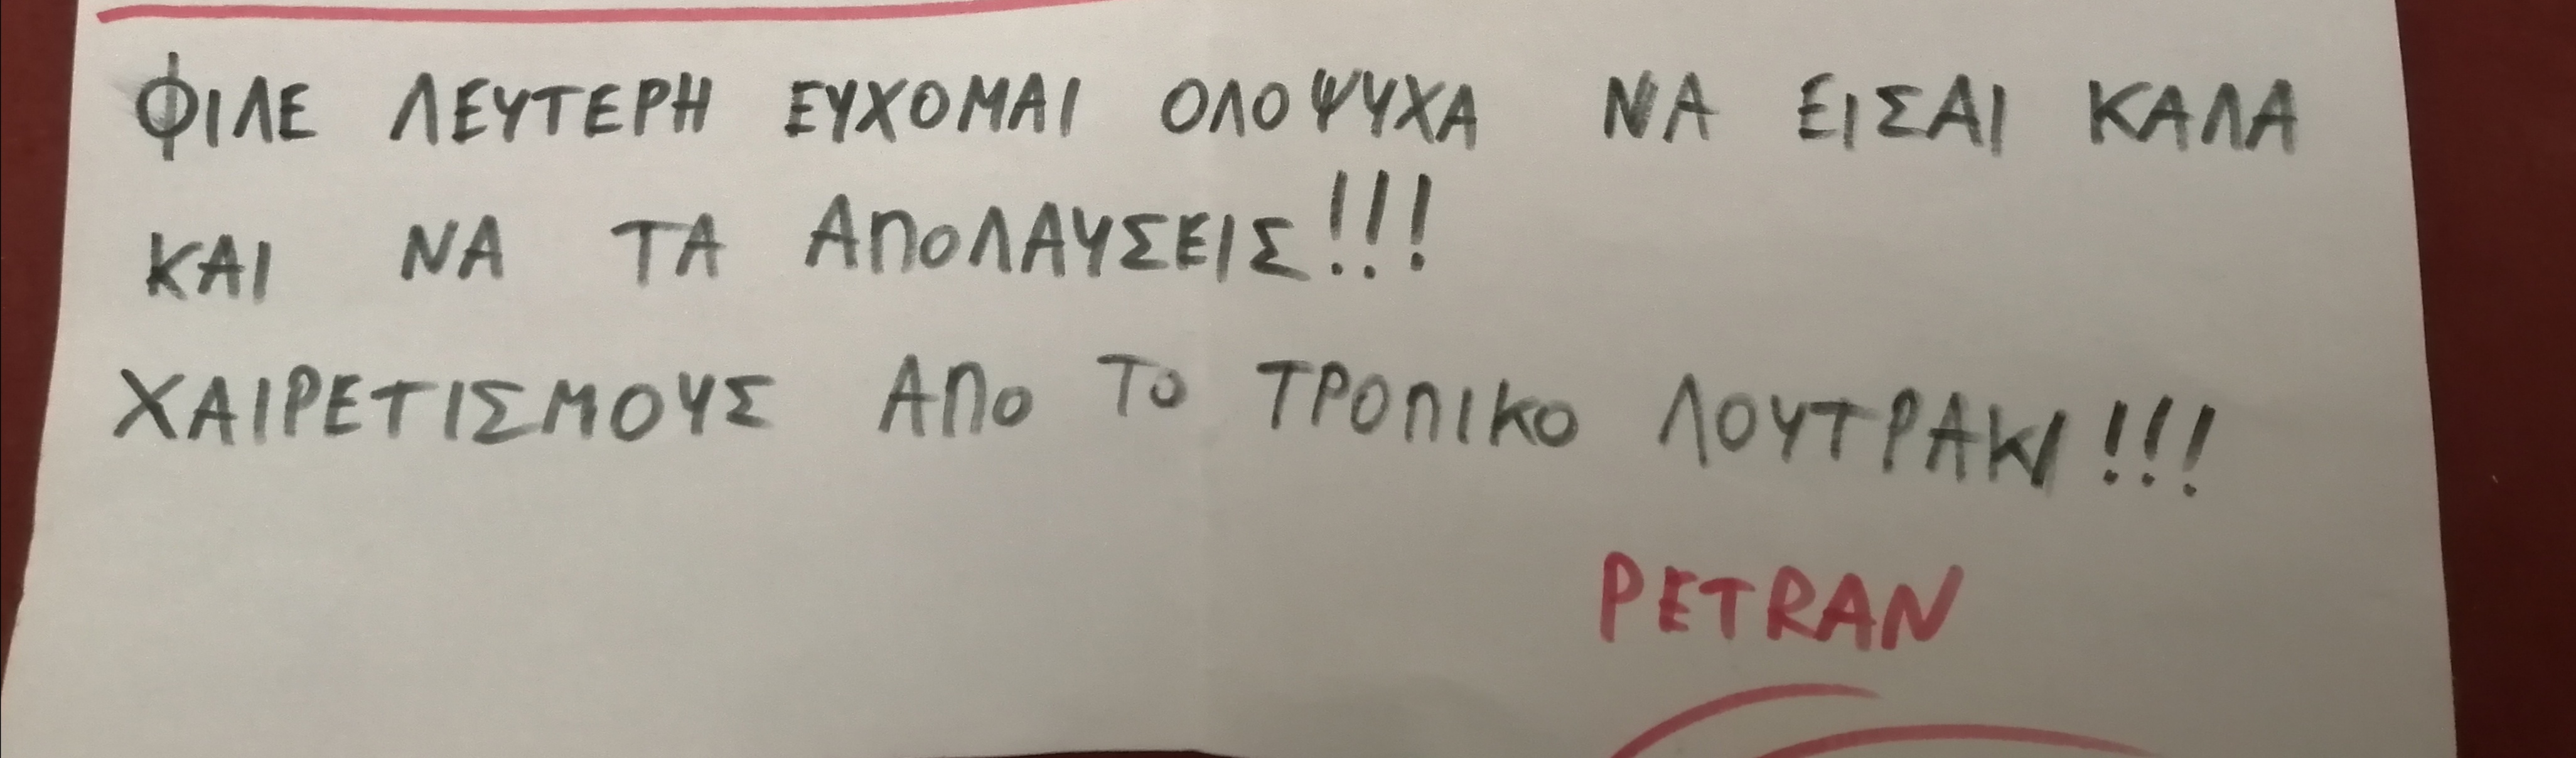 ΦΙΛΕ ΛΕΥΤΕΡΗ ΕΥΧΟΜΑΙ ΟΛΟΨΥΧΑ ΝΑ ΕΙΣΑΙ ΚΑΛΑ
ΚΑΙ ΝΑ ΤΑ ΑΠΟΛΑΥΣΕΙΣ!!!
ΧΑΙΡΕΤΙΣΜΟΥΣ ΑΠΟ ΤΟ ΤΡΟΠΙΚΟ ΛΟΥΤΡΑΚΙ!!!
PETRAN